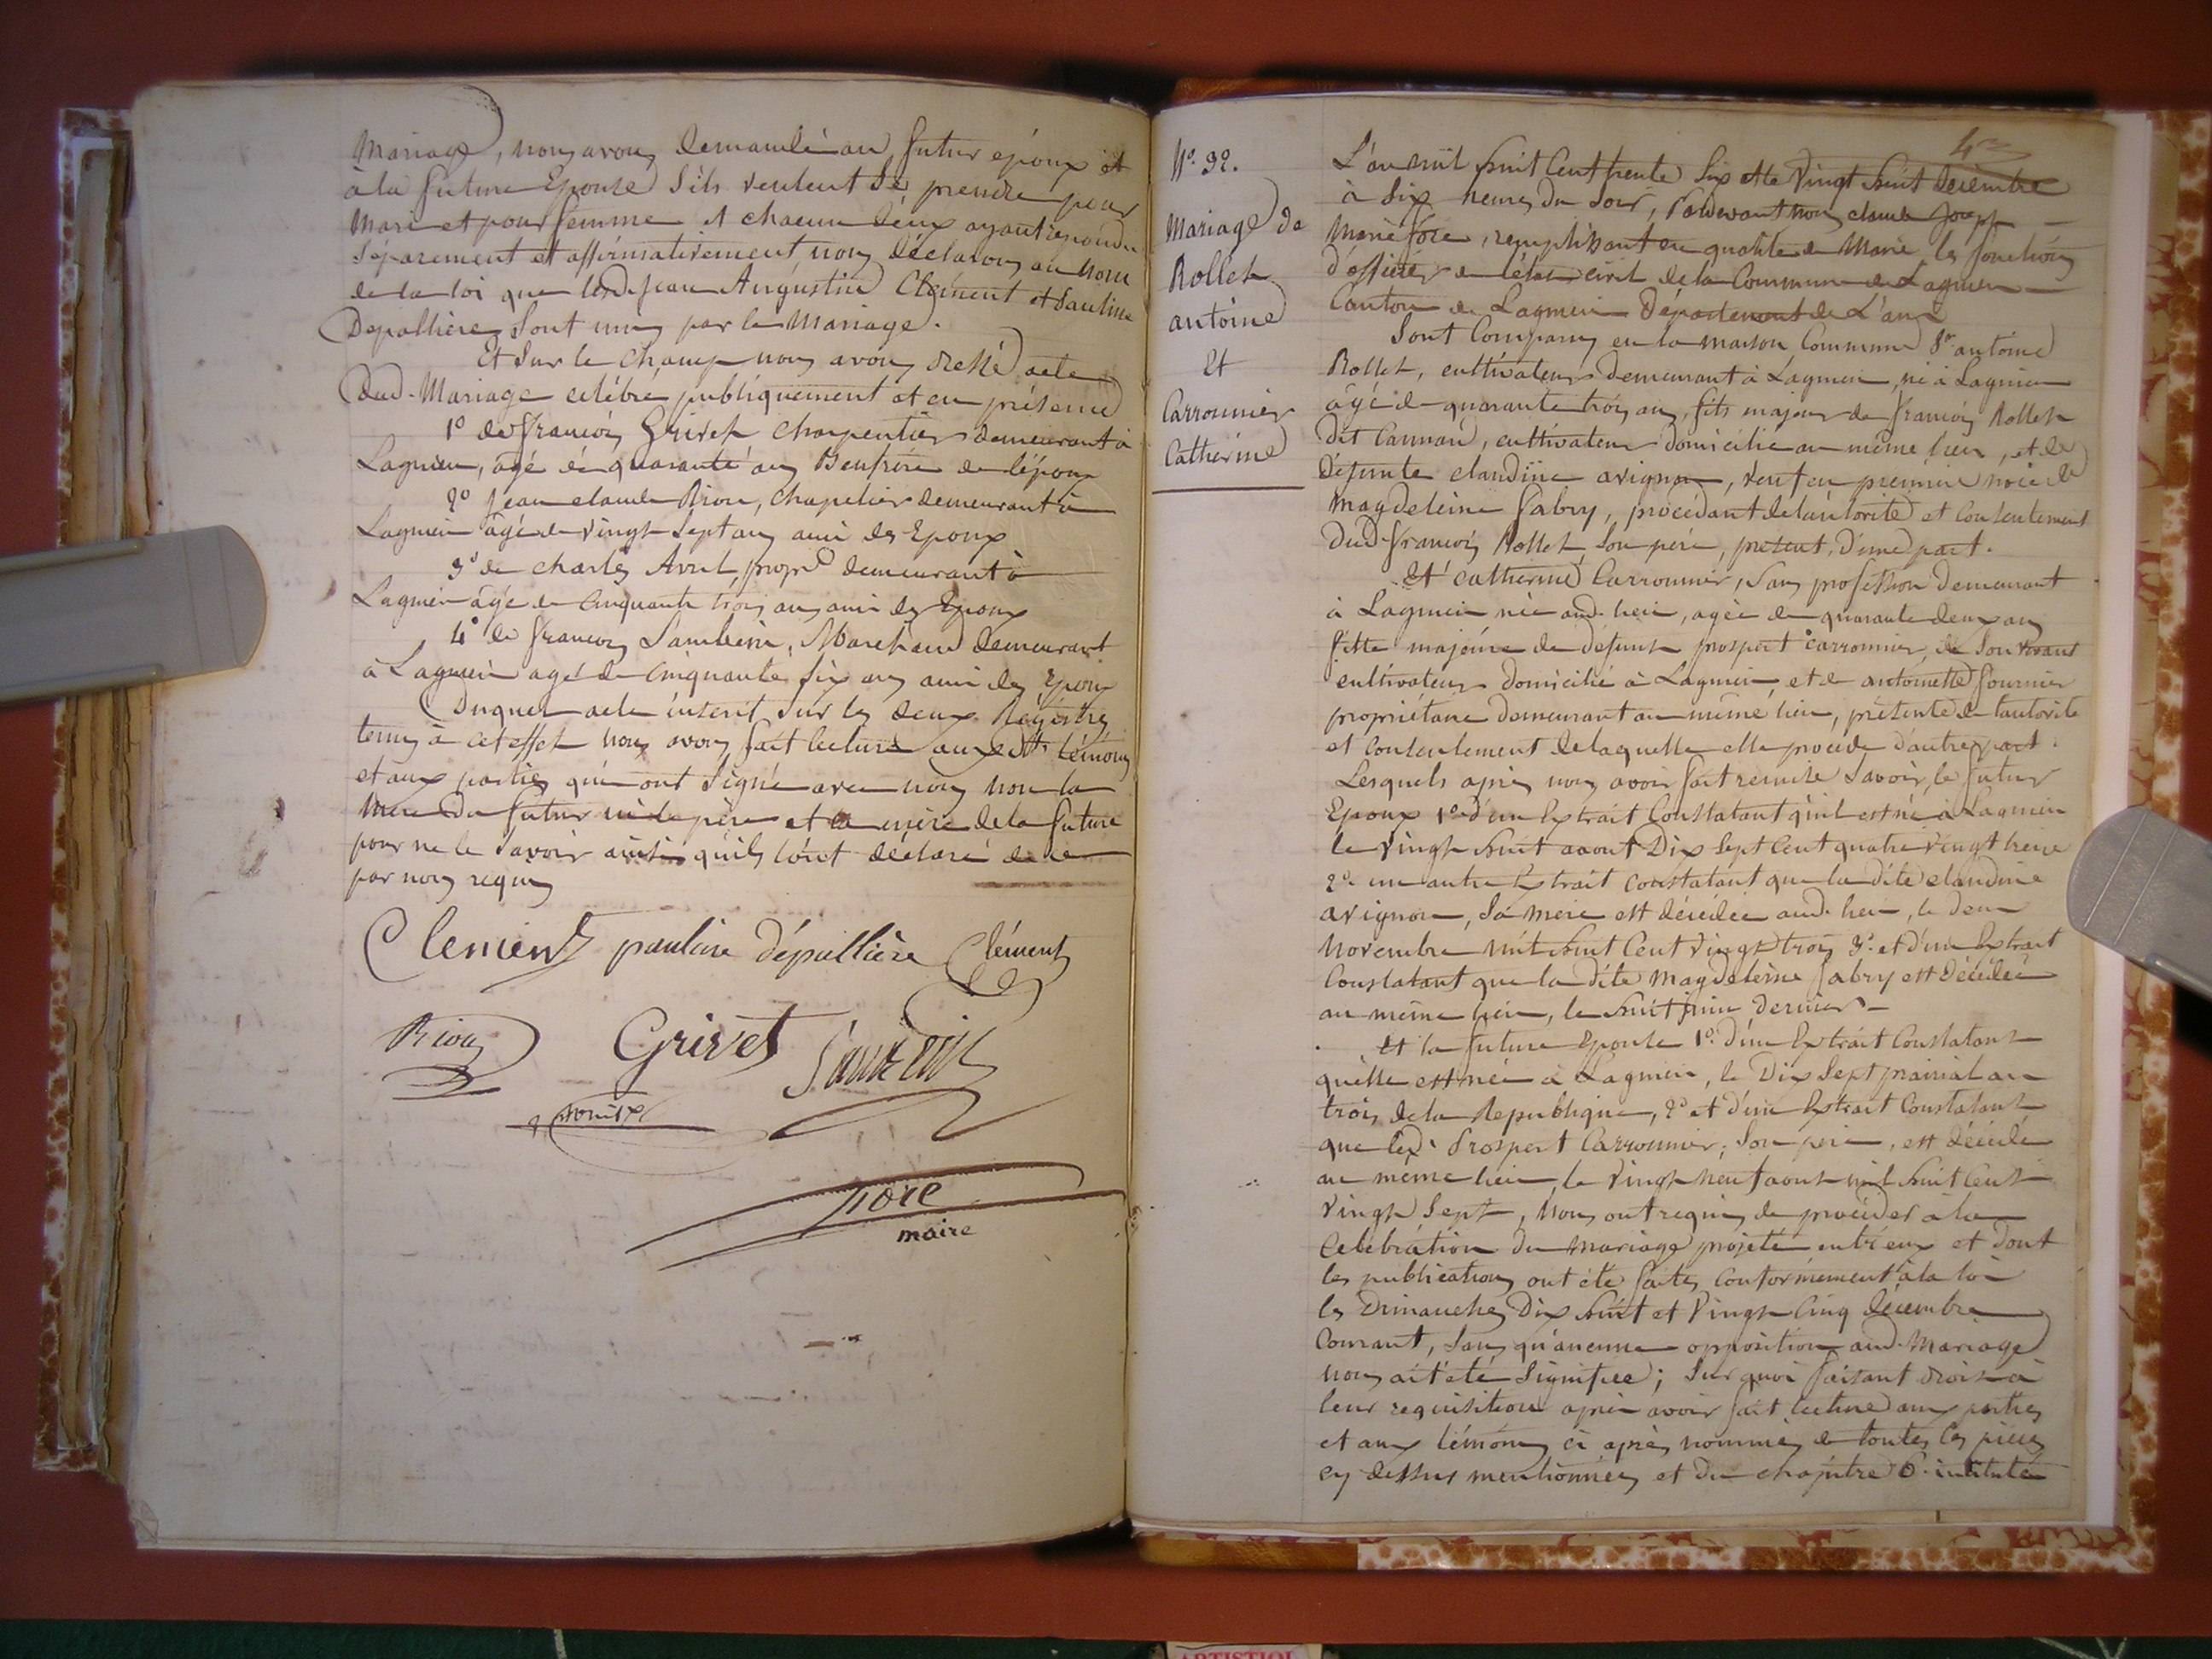 Mariage, nous avons demandé au futur époux et
à la future Epouse s'ils veulent se prendre pour
Mari et pour femme et chacun d'eux ayant répondu
séparement et affirmativement, nous déclarons au nom
de la loi que lesd. Jean Augustin Clément et Pauline
Depallière sont unis par le Mariage.
Et sur le champ nous avons dressé acte
dud. Mariage célébré publiquement et en présence
1° de François Grivet charpentier demeurant à
Lagnieu, âgé de quarante ans Beufrère de l'époux
2° Jean claude Rion, chapelier demeurant à
Lagnieu âgé de vingt sept ans ami des Epoux
3° de charles Avril, propre demeurant à
Lagnieu âgé de cinquante trois ans ami des Epoux
4° de François Marchand demeurant
à Lagnieu agé de cinquante six ans ami des Epoux
Duquel acte inscrit sur les deux Registres
tenus à cet effet nous avons fait lecture auxdts témoins
et aux parties qui ont signé avec nous non la
Mère du futur ni le père et la mère de la future
pour ne le savoir ainsi qu'ils l'ont déclaré de ce
par nous requis
Clement pauline dépallière Clément
Rion Grivet
fore
maire
N° 32.
Mariage de
Rollet
antoine
Et
Carronnier
Catherine
L'an mil huit Cent trente Six et le Vingt huit décembre
à Six heures du Soir, Pardevant nous claude Joseph
Marie fore, remplissant en qualité de Maire les fonctions
d'officier de l'état civil de la Commune de Lagnieu
Canton de Lagnieu Département de L'ain
Sont Comparus en la maison Commune Sr antoine
Rollet, cultivateur demeurant à Lagnieu, né à Lagnieu
âgé de quarante trois ans, fils majeur de françois Rollet
dit cultivateur domicilié au même lieu, et de
défunte claudine avignon, veuf en première noce de
Magdeleine fabry, procédant de l'autorité et consentement
dud. françois Rollet son père, présent, d'une part.
Et catherine Carronnier, sans profession demeurant
à Lagnieu née aud. lieu, agée de quarante deux ans
fille majeure de défunt prospert carronnier, de son vivant
cultivateur domicilié à Lagnieu, et de antoinette fournier
propriétaire demeurant au même lieu, présente de l'autorité
et consentement de laquelle elle procède d'autre part.
Lesquels après nous avoir fait remise savoir, le futur
Epoux 1° d'un Extrait Constatant qu'il est né à Lagnieu
le Vingt huit aaout Dix Sept Cent quatre Vingt treize
2° un autre Extrait constatant que la dite claudine
avignon, sa mère est décédée aud. lieu, le deux
Novembre mil huit Cent Vingt trois 3° et d'un Extrait
Constatant que la dite Magdeleine fabry est décédée
au même lieu, le huit juin dernier
Et la future Epouse 1° d'un Extrait Constatant
qu'elle est née à Lagnieu, le Dix Sept prairial an
trois de la République, 2° et d'un Extrait Constatant
que led. Prospert Carronnier, son père, est décédé
au même lieu, le Vingt neuf aout mil huit Cent
Vingt Sept, Nous ont requis de procéder à la
Célébration du mariage projeté entr'eux et dont
les publications ont été faites Conformément à la loi
les Dimanches Dix huit et Vingt Cinq décembre
Courant, sans qu'aucune opposition aud. Mariage
nous ait été signifiée; Sur quoi faisant droit à
leur requisition après avoir fait lecture aux parties
et aux témoins ci après nommés de toutes les pièces
cy dessus mentionnées et du chapitre 6. intitulé